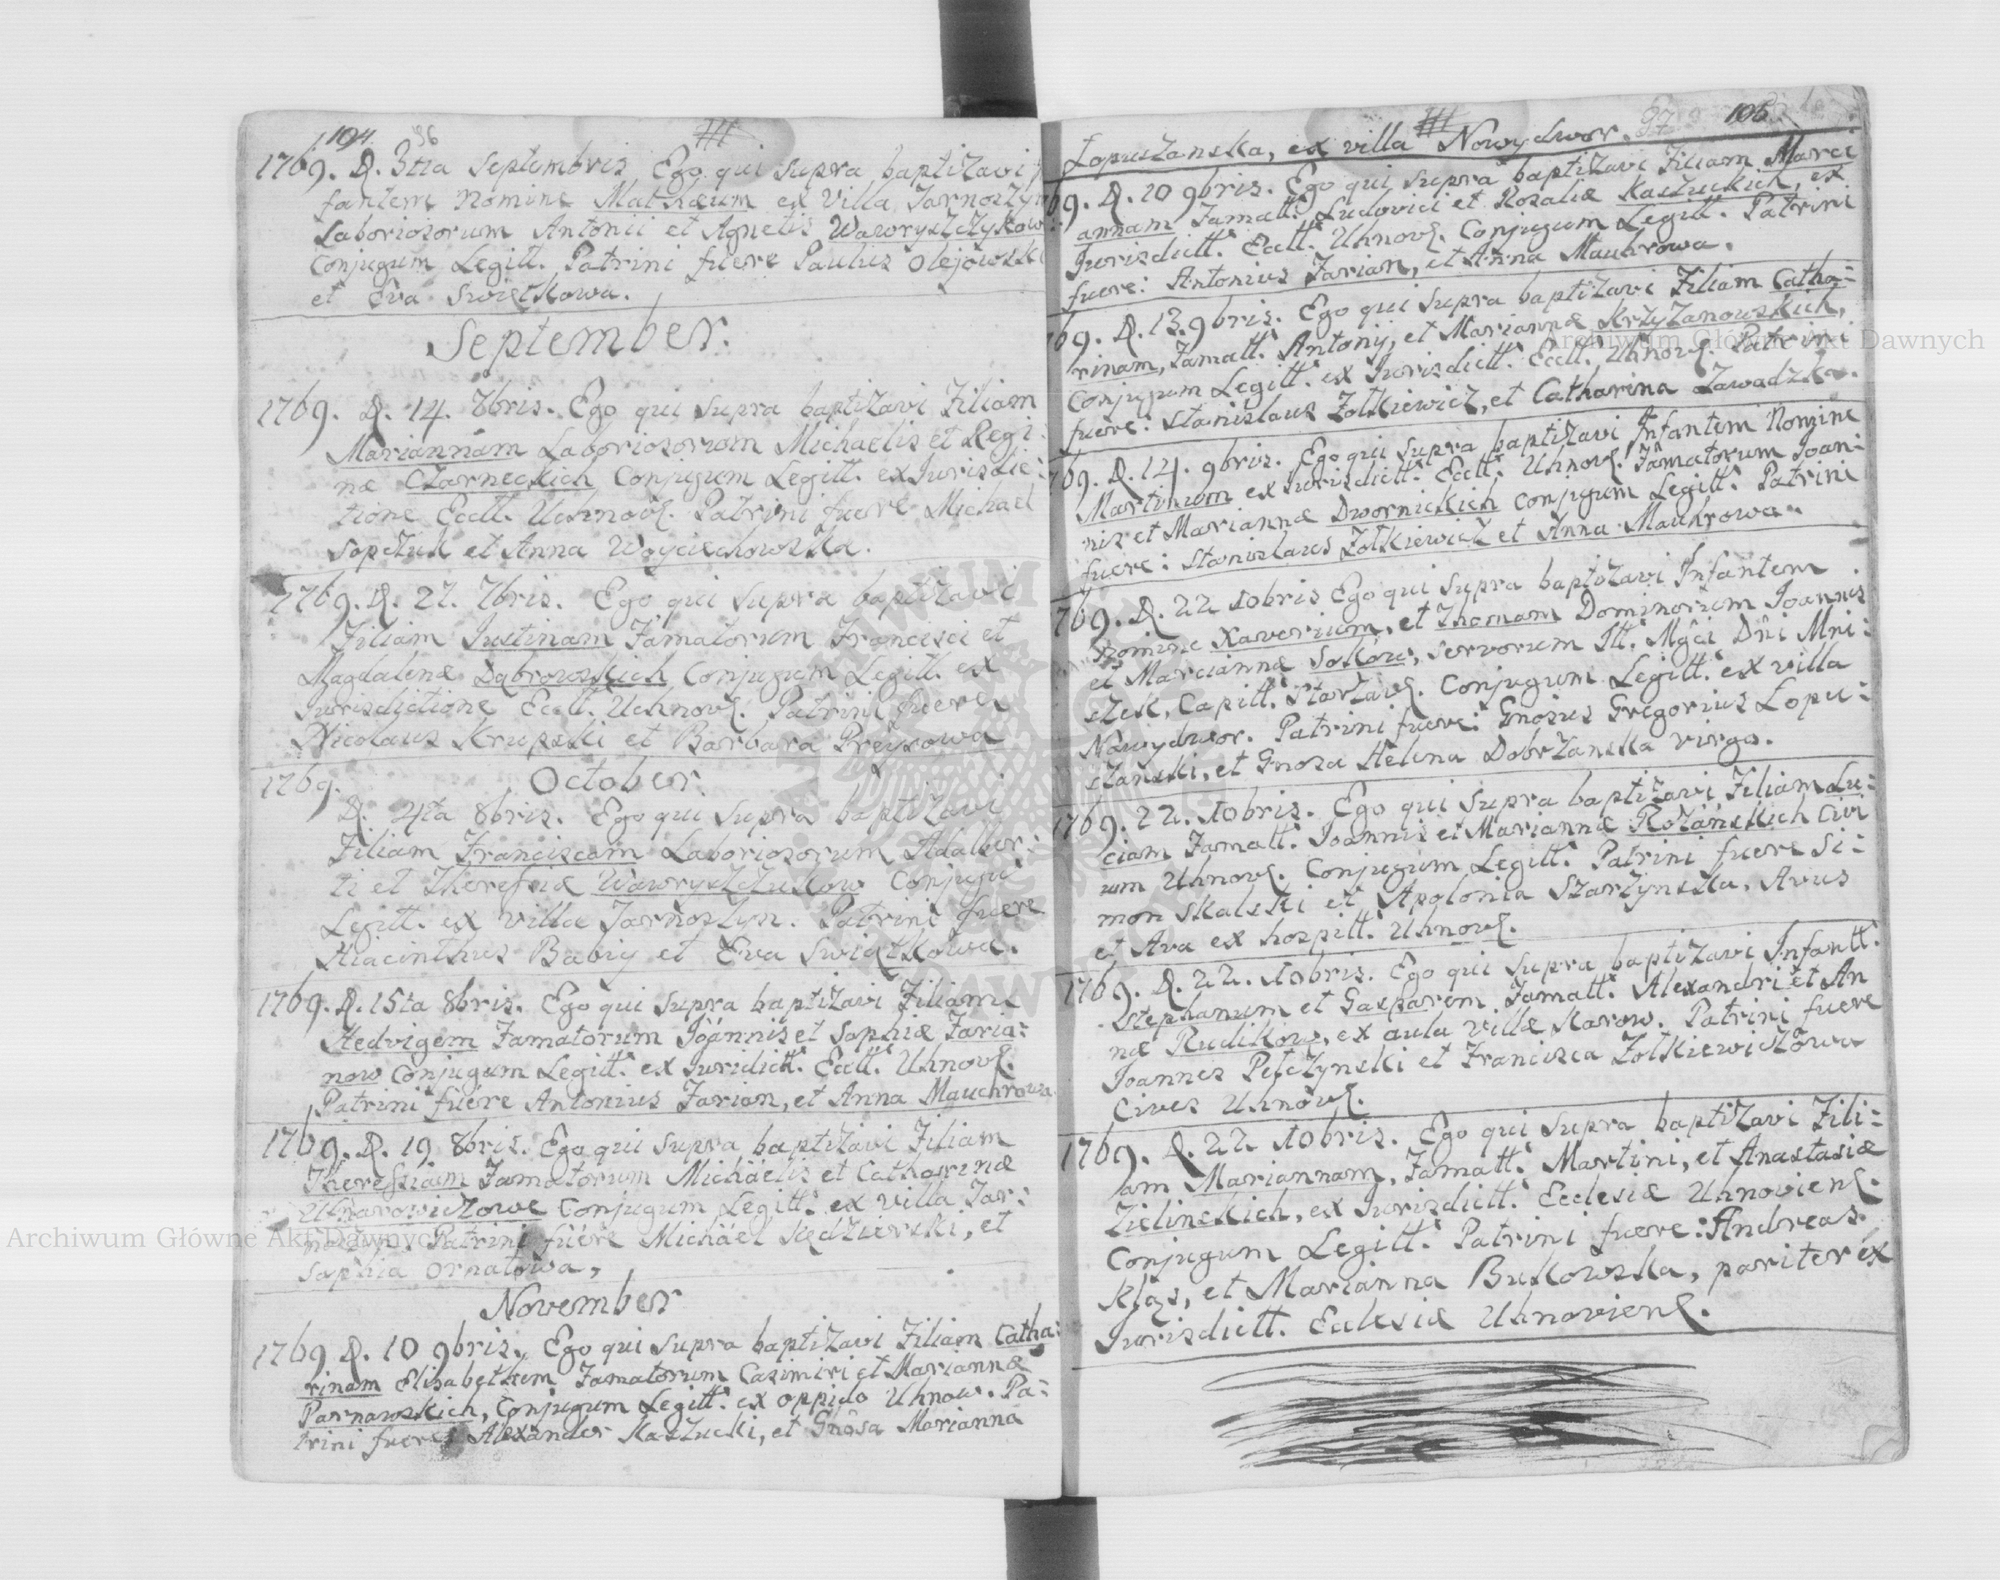 104. 96
1769. D. 3tia Septembris Ego qui supra baptizavi
fantem nomine Mathæum ex Villa Jarnoszyn
Laboriosorum Antonii et Agnetis Wawryszczykow
Conjugum Legitt. Patrini fuere Paulus Olejowski
et Eva Swiętkowa.
September.
1769. D. 14. 7bris. Ego qui supra baptizavi Filiam
Mariannam Laboriosorum Michaelis et Regi:
næ Czarneckich Conjugum Legitt. ex Jurisdic:
tione Eccll. Uchnov. Patrini fuere Michael
Sapczuk et Anna Woyciechowska.
1769. D. 27. 7bris. Ego qui supra baptizavi
Filiam Justinam Famatorum Francisci et
Magdalenæ Dąbrowskich Conjugum Legitt. ex
Jurisdictione Eccll. Uchnov. Patrini fuere
Nicolaus Krupski et Barbara Preysowa
1769. October.
D. 4ta 8bris. Ego qui supra baptizavi
Filiam Franciscam Laboriosorum Adalber:
ti et Theresiæ Wawryszczukow Conjugu
Legitt. ex villa Jarnoszyn. Patrini fuere
Hiacinthus Babiy et Eva Swiętkowa.
1769. D. 15ta 8bris. Ego qui supra baptizavi Filiam
Hedvigem Famatorum Joannis et Sophiæ Faria:
now Conjugum Legitt. ex Juridictt. Eccll. Uhnov.
Patrini fuere Antonius Farian, et Anna Mauchrowa
1769. D. 19 8bris. Ego qui supra baptizavi Filiam
Theressiam Famatorum Michäelis et Catharinæ
Conjugum Legitt. ex villa Jar:
noszyn. Patrini fuere Michäel Kędzierski, et
Sophia Ornatowa,
November
1769 D. 10 9bris. Ego qui supra baptizavi Filiam Catha:
rinam Elisabethem Famatorum Casimiri et Mariannæ
Parnawskich, Conjugum Legitt. ex oppido Uhnow. Pa:
trini fuere Alexander Kaszucki, et Gnosa Marianna
97 105
Łopuszanska, ex villa Nowydwor.
69. D. 10 9bris. Ego qui supra baptizavi Filiam Mari
annam Famatt. Ludovici et Rosaliæ Kaszuckich, ex
Jurisdictt. Eccll. Uhnov. Conjugum Legitt. Patrini
fuere: Antonius Farian, et Anna Mauhrowa.
69. D. 13. 9bris. Ego qui supra baptizavi Filiam Catha:
rinam, Famatt. Antonij, et Mariannæ Krzyzanowskich,
Conjugum Legitt. ex Jurisdictt. Eccll. Uhnov. Patrini
fuere: Stanislaus Zołkiewicz, et Catharina Zawadzka.
769. D. 14. 9bris. Ego qui supra baptizavi Infantem Nomine
Martinum ex Jurisdictt. Eccll. Uhnov. Famatorum Joan:
nis et Mariannæ Dwornickich Conjugum Legitt. Patrini
fuere: Stanislaus Zołkiewicz et Anna Mauhrowa.
769. D. 22 10bris Ego qui supra baptizavi Infantem
Nomine Xaverium, et Thomam Dominorum Joannis
et Marciannæ Sokow, servorum Ill. Mgci Dni Mni:
szek, Capitt. Conjugum Legitt. ex villa
Nowydwor. Patrini fuere: Gnosus Gregorius Łopu:
szanski, et Gnosa Helena Dobrzanska virgo.
1769. 22. 10bris. Ego qui supra baptizavi Filiam Lu:
ciam Famatt. Joannis et Mariannæ Rożanskich Civi
um Uhnov. Conjugum Legitt. Patrini fuere Si:
mon Skalski et Apolonia Starzynska, Avus
et Ava ex hospitt. Uhnov.
1769. D. 22. 10bris. Ego qui supra baptizavi Infantt.
Stephanum et Gasparem Famatt. Alexandri et An
næ Rudikow, ex aula villæ Karow. Patrini fuere
Joannes Pełczynski et Francisca Zołkiewiczowa
Cives Uhnov.
1769. D. 22 10bris. Ego qui supra baptizavi Fili:
am Mariannam, Famatt. Martini, et Anastasiæ
Zielinskich, ex Jurisdictt. Ecclesiæ Uhnovien.
Conjugum Legitt. Patrini fuere: Andreas
Kłąs, et Marianna Bukowska, pariter ex
Jurisdictt. Eclesiæ Uhnovien.
Archiwum Główne Akt Dawnych
Archiwum Główne Akt Dawnych